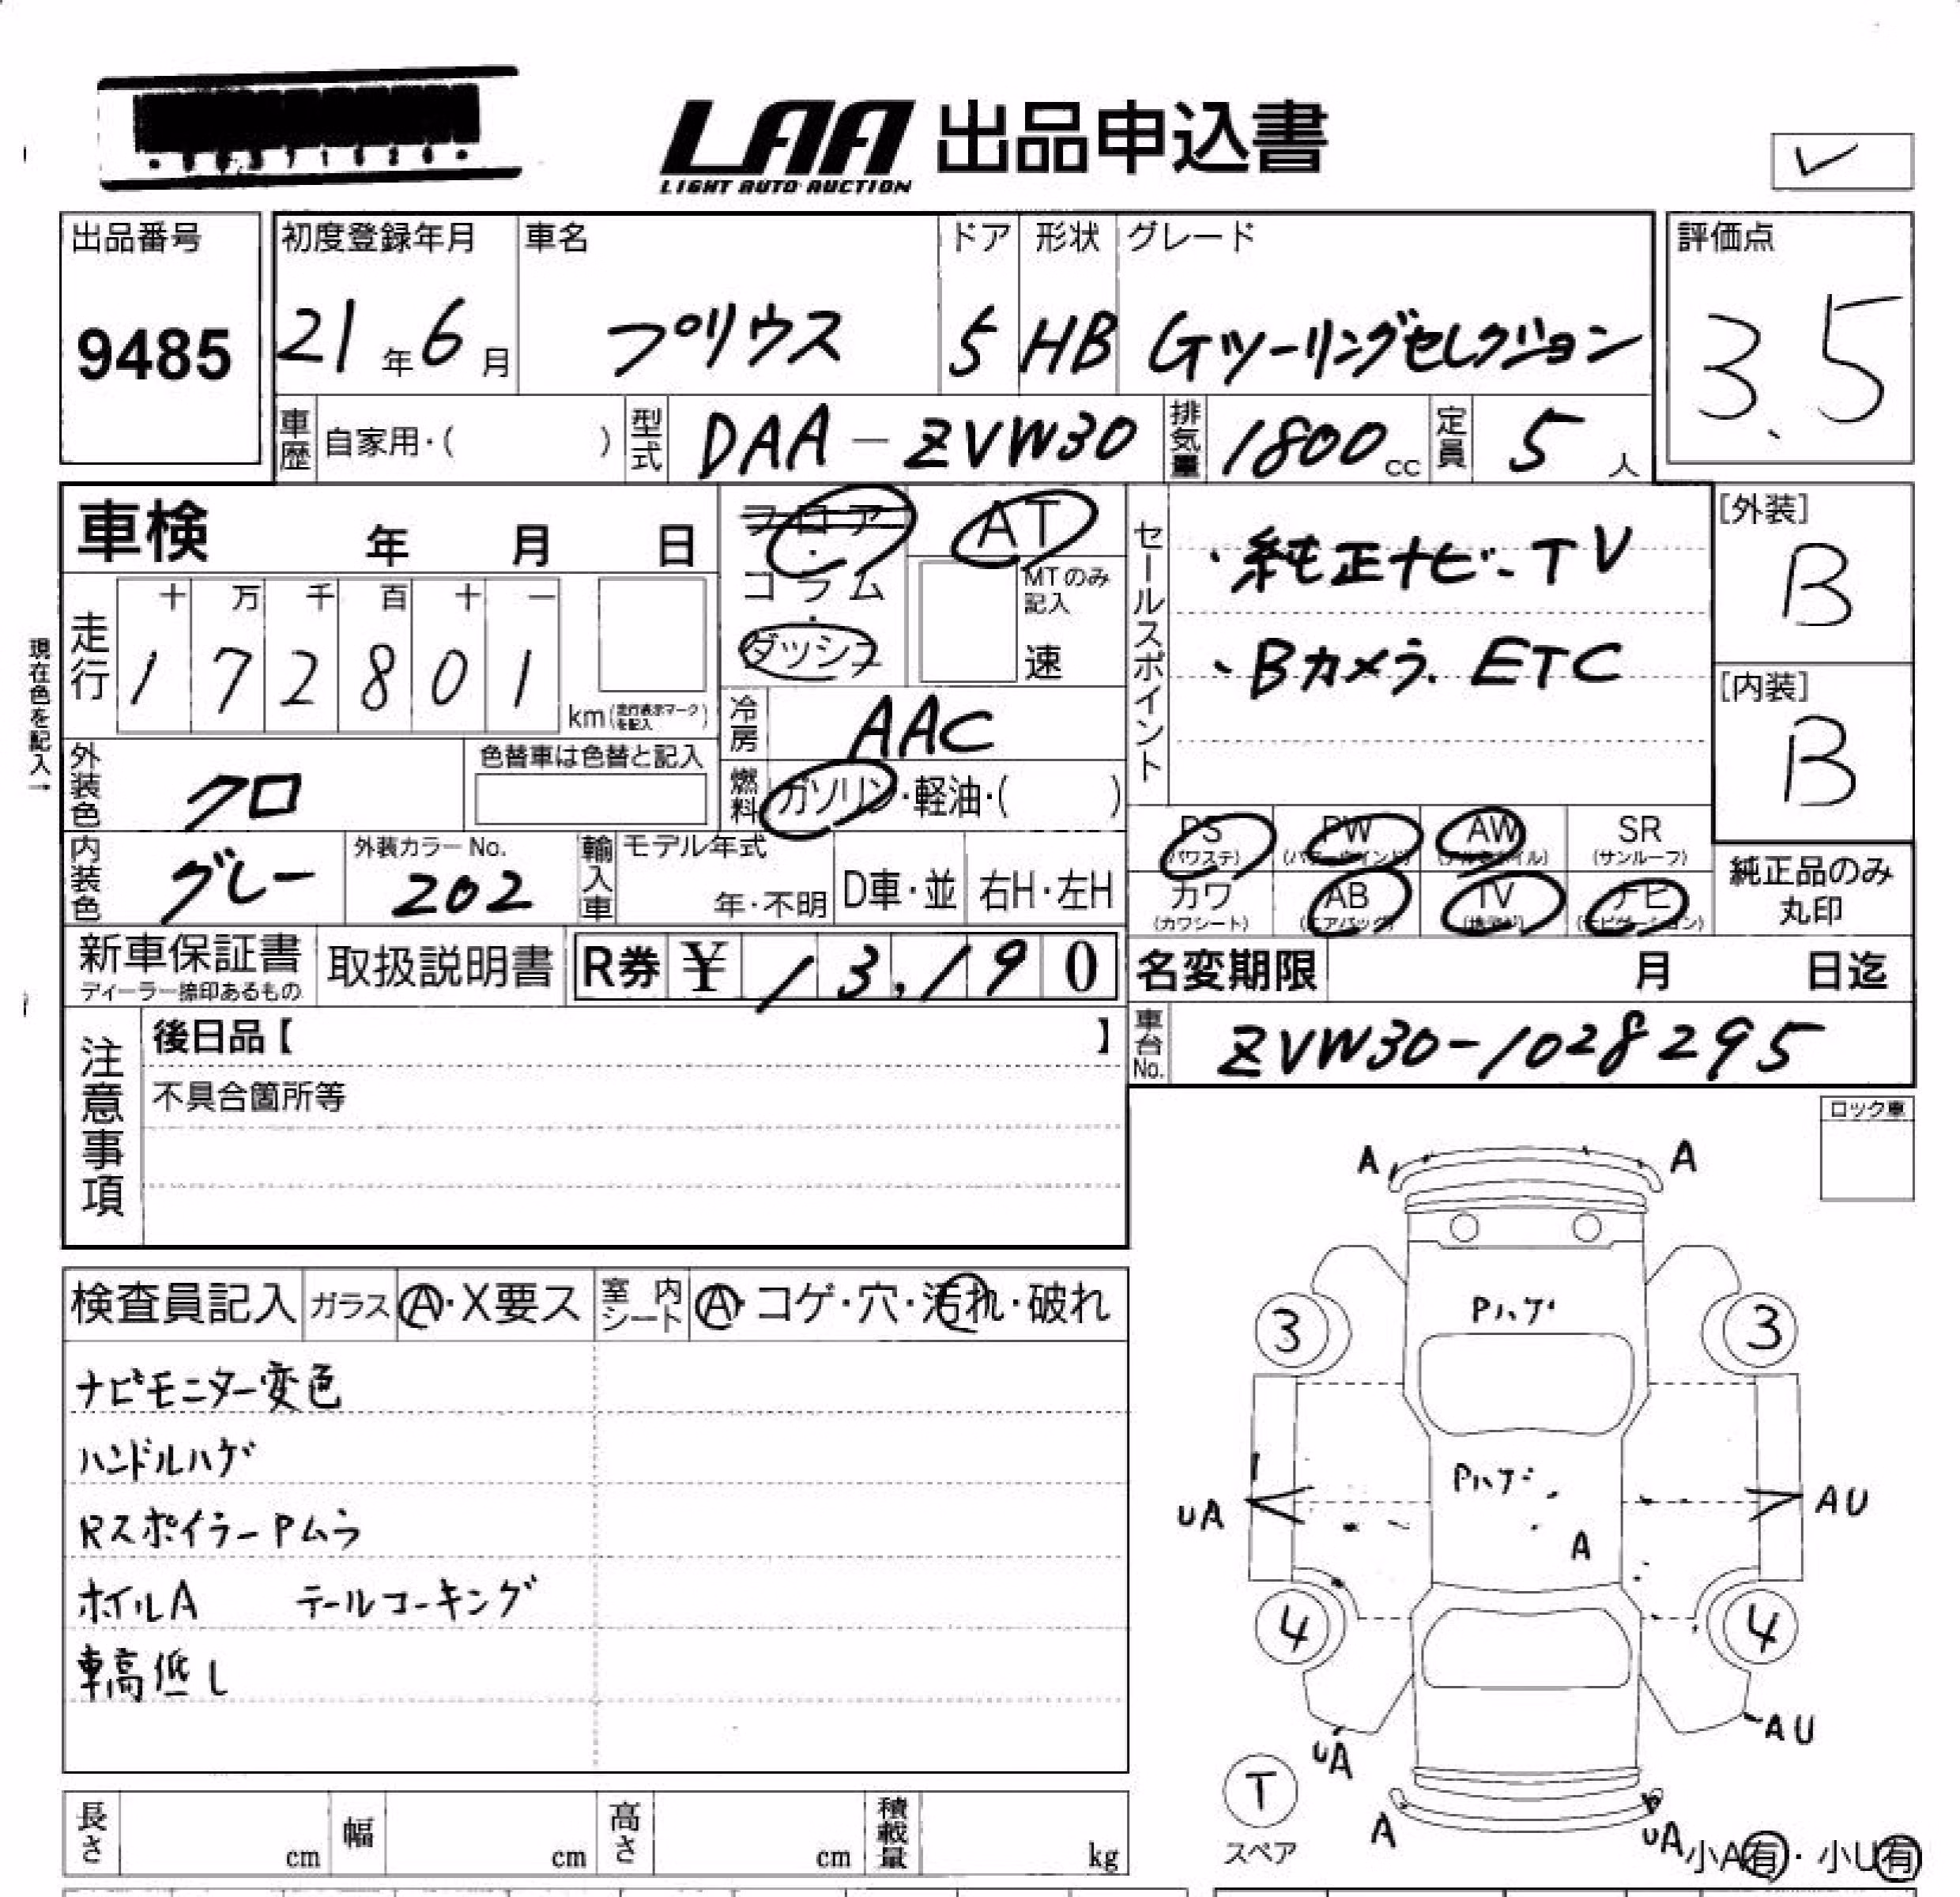 LAA 出品申込書
LIGHT AUTO AUCTION
出品番号
9485
初度登録年月
21年6月
車名
プリウス
ドア
5
形状
HB
グレード
Gツーリングセレクション
評価点
3.5
車歴
自家用・( )
型式
DAA-ZVW30
排気量
1800cc
定員
5人
車検 年 月 日
フロア・コラム・ダッシュ
AT
MTのみ記入
速
セールスポイント
・純正ナビ-TV
、Bカメラ. ETC
[外装]
B
[内装]
B
現在色を記入→
走行
十 万 千 百 十 一
1 7 2 8 0 1
km(走行表示マークを記入)
冷房
AAC
外装色
クロ
色替車は色替と記入
燃料
ガソリン・軽油・( )
内装色
グレー
外装カラーNo.
202
輸入車
モデル年式
年・不明
D車・並
右H・左H
PS (パワステ)
PW (パワーウインド)
AW (アルミホイル)
SR (サンルーフ)
カワ (カワシート)
AB (エアバッグ)
TV (地デジ)
ナビ (ナビゲーション)
純正品のみ丸印
新車保証書
ディーラー捺印あるもの
取扱説明書
R券 ¥ 13,190
名変期限 月 日迄
車台No.
ZVW30-1028295
注意事項
後日品【 】
不具合箇所等
ロック車
検査員記入
ガラス
A・X要ス
室内シート
A・コゲ・穴・汚れ・破れ
ナビモニター変色
ハンドルハゲ
RスポイラーPムラ
ホイルA テールコーキング
車高低し
A
A
3
Pハゲ
3
Pハゲ
UA
A
AU
4
4
UA
AU
T
スペア
A
UA
小A有・小U有
長さ cm
幅 cm
高さ cm
積載量 kg